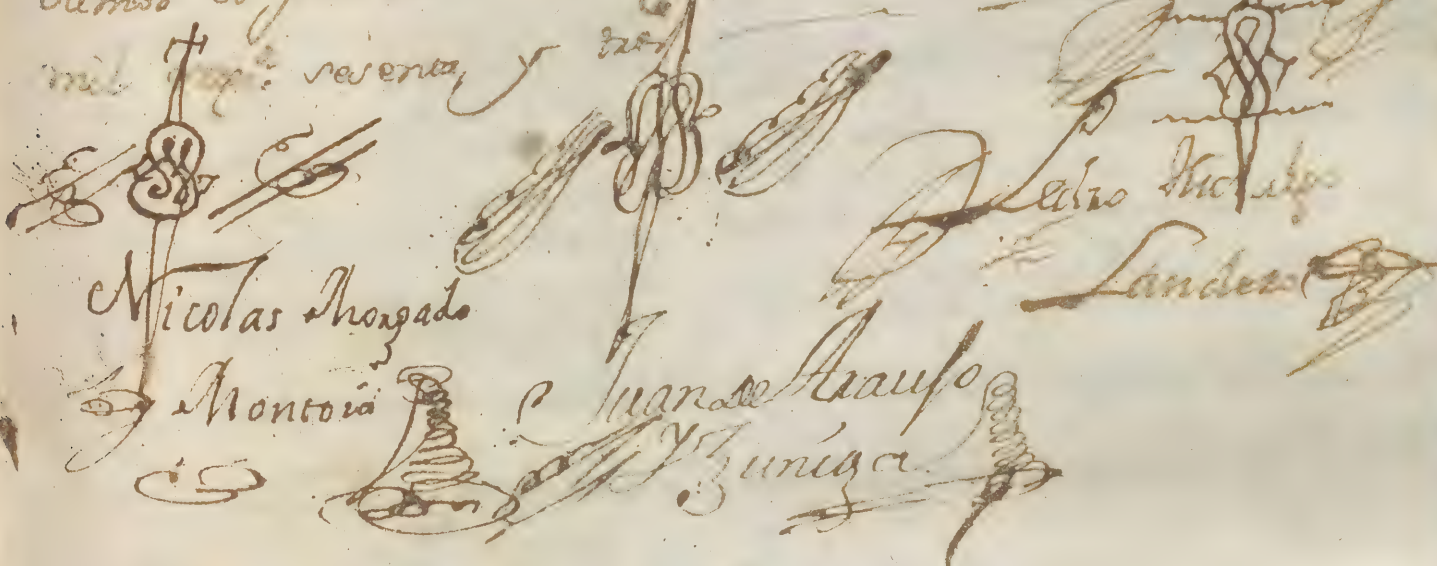 mil sesenta y tres
Nicolas Morgado
y Montoia
Juan de Araujo
y Zuniga
Pedro
Landero